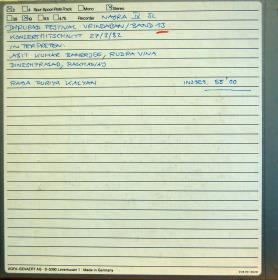 2 4 Spur Spool-Rate Track Mono Stereo
38 19 9.5 4.75 Recorder NAGRA IV SL
DHRUPAD FESTIVAL VRINDABAN / BAND 13
KONZERTMITSCHNITT 27/3/82
INTERPRETEN:
ASIT KUMAR BANERJEE, RUDRA VINA
DINESH PRASAD, PAKHAWAJ
RAGA PURIYA KALYAN INSGES. 55'00
AGFA-GEVAERT AG · D-5090 Leverkusen 1 · Made in Germany